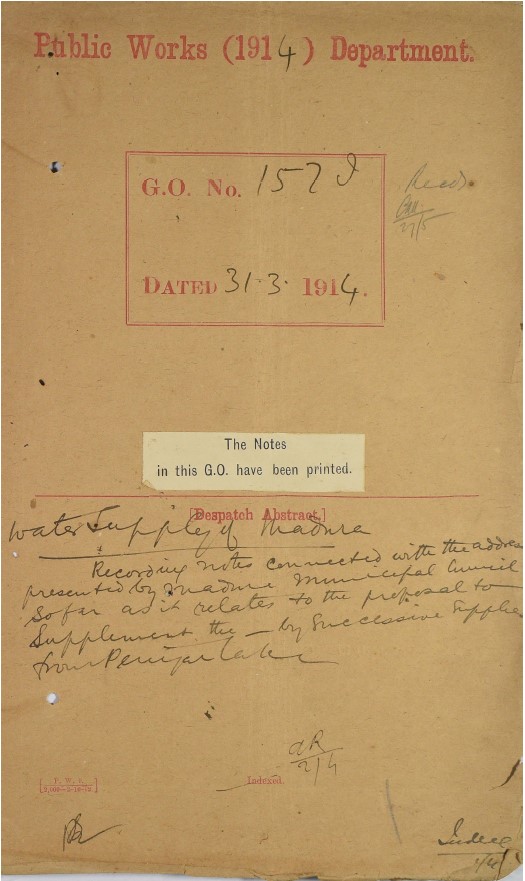 Public Works (1914) Department.
G.O. No. 157 I
Recd.
27/5
DATED 31.3.1914.
The Notes
in this G.O. have been printed.
[Despatch Abstract.]
Water Supply of Madura
Recording notes connected with the address
presented by Madura Municipal Council
so far as it relates to the proposal to
supplement the — by successive supplies
from Periyar lake
2/4
P. W. D.
Indexed.
Indexed